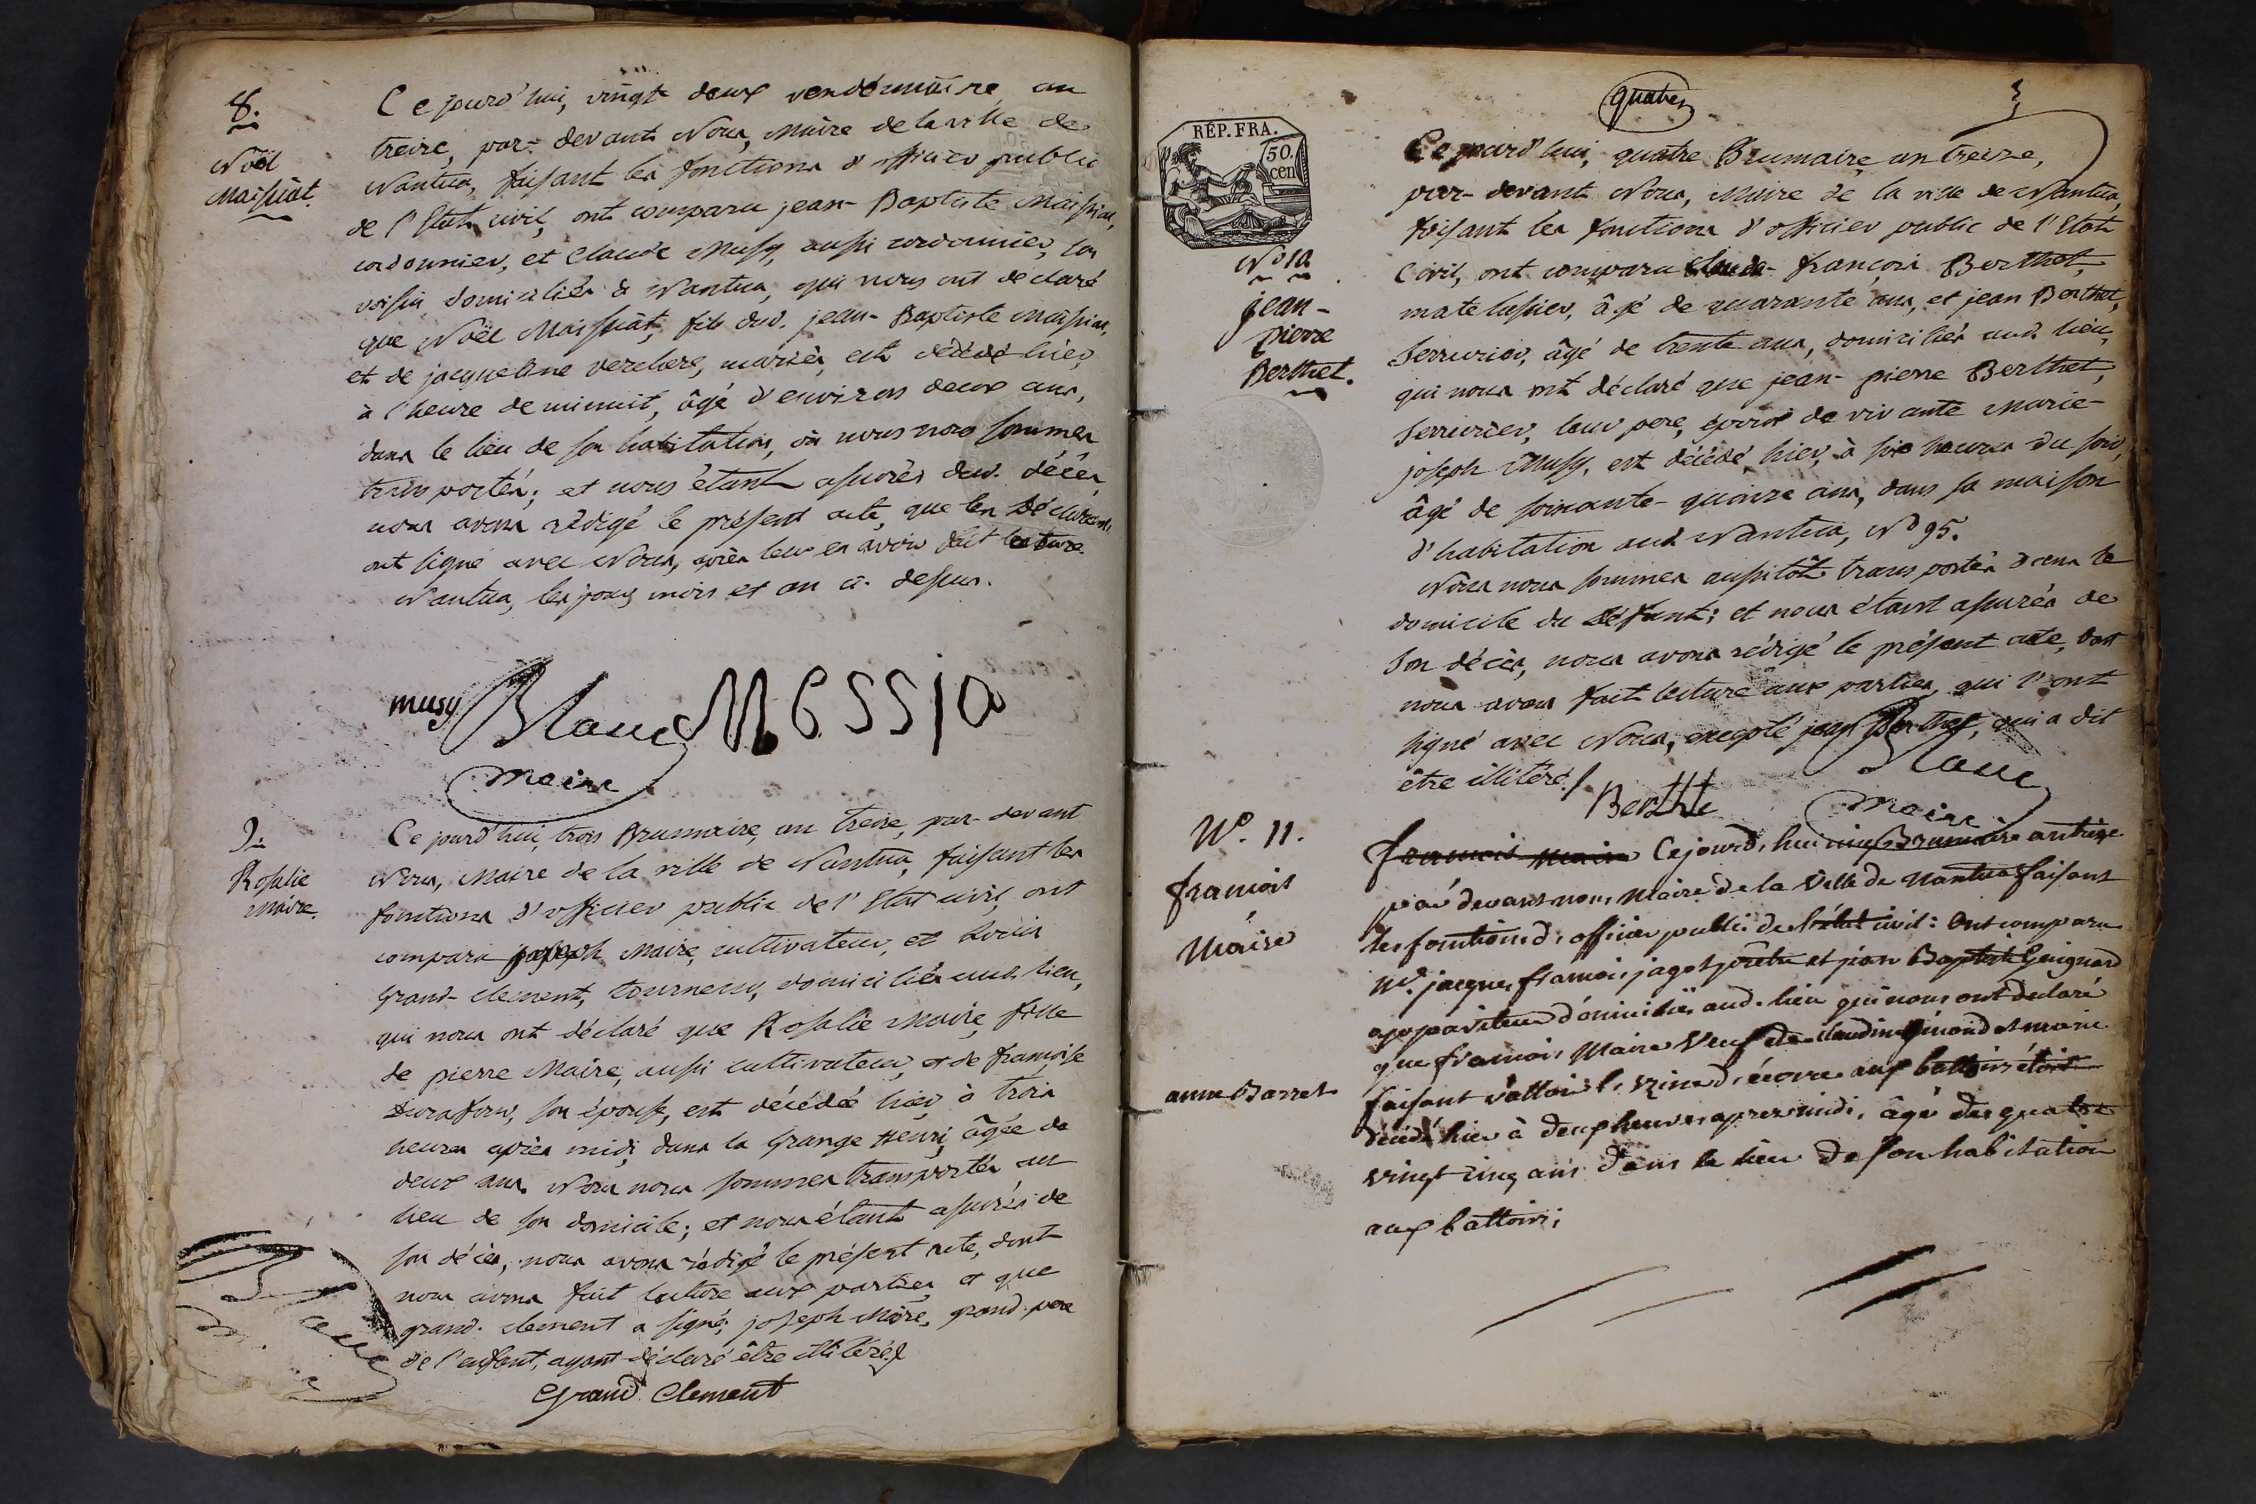 8.
Noël
Maissiat.
Ce jourd'hui, vingt deux vendémiaire, an
treize, par-devant Nous, Maire de la ville de
Nantua, faisant les fonctions d'officier public
de l'Etat civil, ont comparu jean-Baptiste Maissiat,
cordonnier, et Claude Musy, aussi cordonnier, son
voisin domiciliés à Nantua, qui nous ont declaré
que Noël Maissiat, fils dud. jean-Baptiste Maissiat,
et de jacqueline verchere, mariés, est décédé hier,
à l'heure de minuit, âgé d'environ deux ans,
dans le lieu de son habitation, où nous nous sommes
transportés; et nous étant assurés dud. décès,
nous avons rédigé le présent acte, que les Déclarans
ont signé avec Nous, après leur en avoir fait lecture.
Nantua, les jour, mois et an ci-dessus.
musy Blanc Messia
maire
9.
Rosalie
Maire.
Ce jourd'hui, trois Brumaire, an treize, par-devant
Nous, Maire de la ville de Nantua, faisant les
fonctions d'officier public de l'Etat civil, ont
comparu joseph Maire, cultivateur, et
Grand-clement, tourneur, domiciliés aud. lieu,
qui nous ont déclaré que Rosalie Maire, fille
de pierre Maire, aussi cultivateur, et de françoise
son épouse, est décédée hier à trois
heures après midi, dans la Grange Henri, âgée de
deux ans. Nous nous sommes transportés au
lieu de son domicile; et nous étant assurés de
son décès, nous avons rédigé le présent acte, dont
nous avons fait lecture aux parties, et que
grand-clement a signé; joseph Maire, grand-pere
de l'enfant, ayant déclaré être illitéré.
Blanc
Grand Clement
quatre
RÉP. FRA.
50.
cen
N° 10.
jean-
pierre
Berthet.
Ce jourd'hui, quatre Brumaire, an treize,
par-devant Nous, Maire de la ville de Nantua,
faisant les fonctions d'officier public de l'Etat
Civil, ont comparu Claude-françois Berthet,
matelassier, âgé de quarante ans, et jean Berthet,
serrurier, âgé de trente ans, domiciliés aud. lieu,
qui nous ont déclaré que jean-pierre Berthet,
serrurier, leur pere, époux de vivante Marie-
joseph Musy, est décédé hier, à six heures du soir,
âgé de soixante-quinze ans, dans sa maison
d'habitation aud. Nantua, N° 95.
Nous nous sommes aussitôt transportés dans le
domicile du Défunt; et nous étant assurés de
son décès, nous avons rédigé le présent acte, dont
nous avons fait lecture aux parties, qui l'ont
signé avec Nous, excepté jean Berthet, qui a dit
être illitéré.
Berthe Blanc
maire
N°. 11.
françois
Maire
anne Barret
françois Maire Ce jourd'hui cinq Brumaire an treize
par devant nous, Maire de la ville de Nantua faisant
les fonctions d'officier public de l'état civil: Ont comparu
Mr. jacques françois jagot prêtre et jean Baptiste Guignard
appariteur domiciliés aud. lieu qui nous ont declaré
que françois Maire veuf de claudine et mari
faisant valloir l'uzine d'écorce aux battoirs étoit
décédé hier à deux heures apres midi, âgé de quatre
vingt cinq ans dans le lieu de son habitation
aux battoirs;